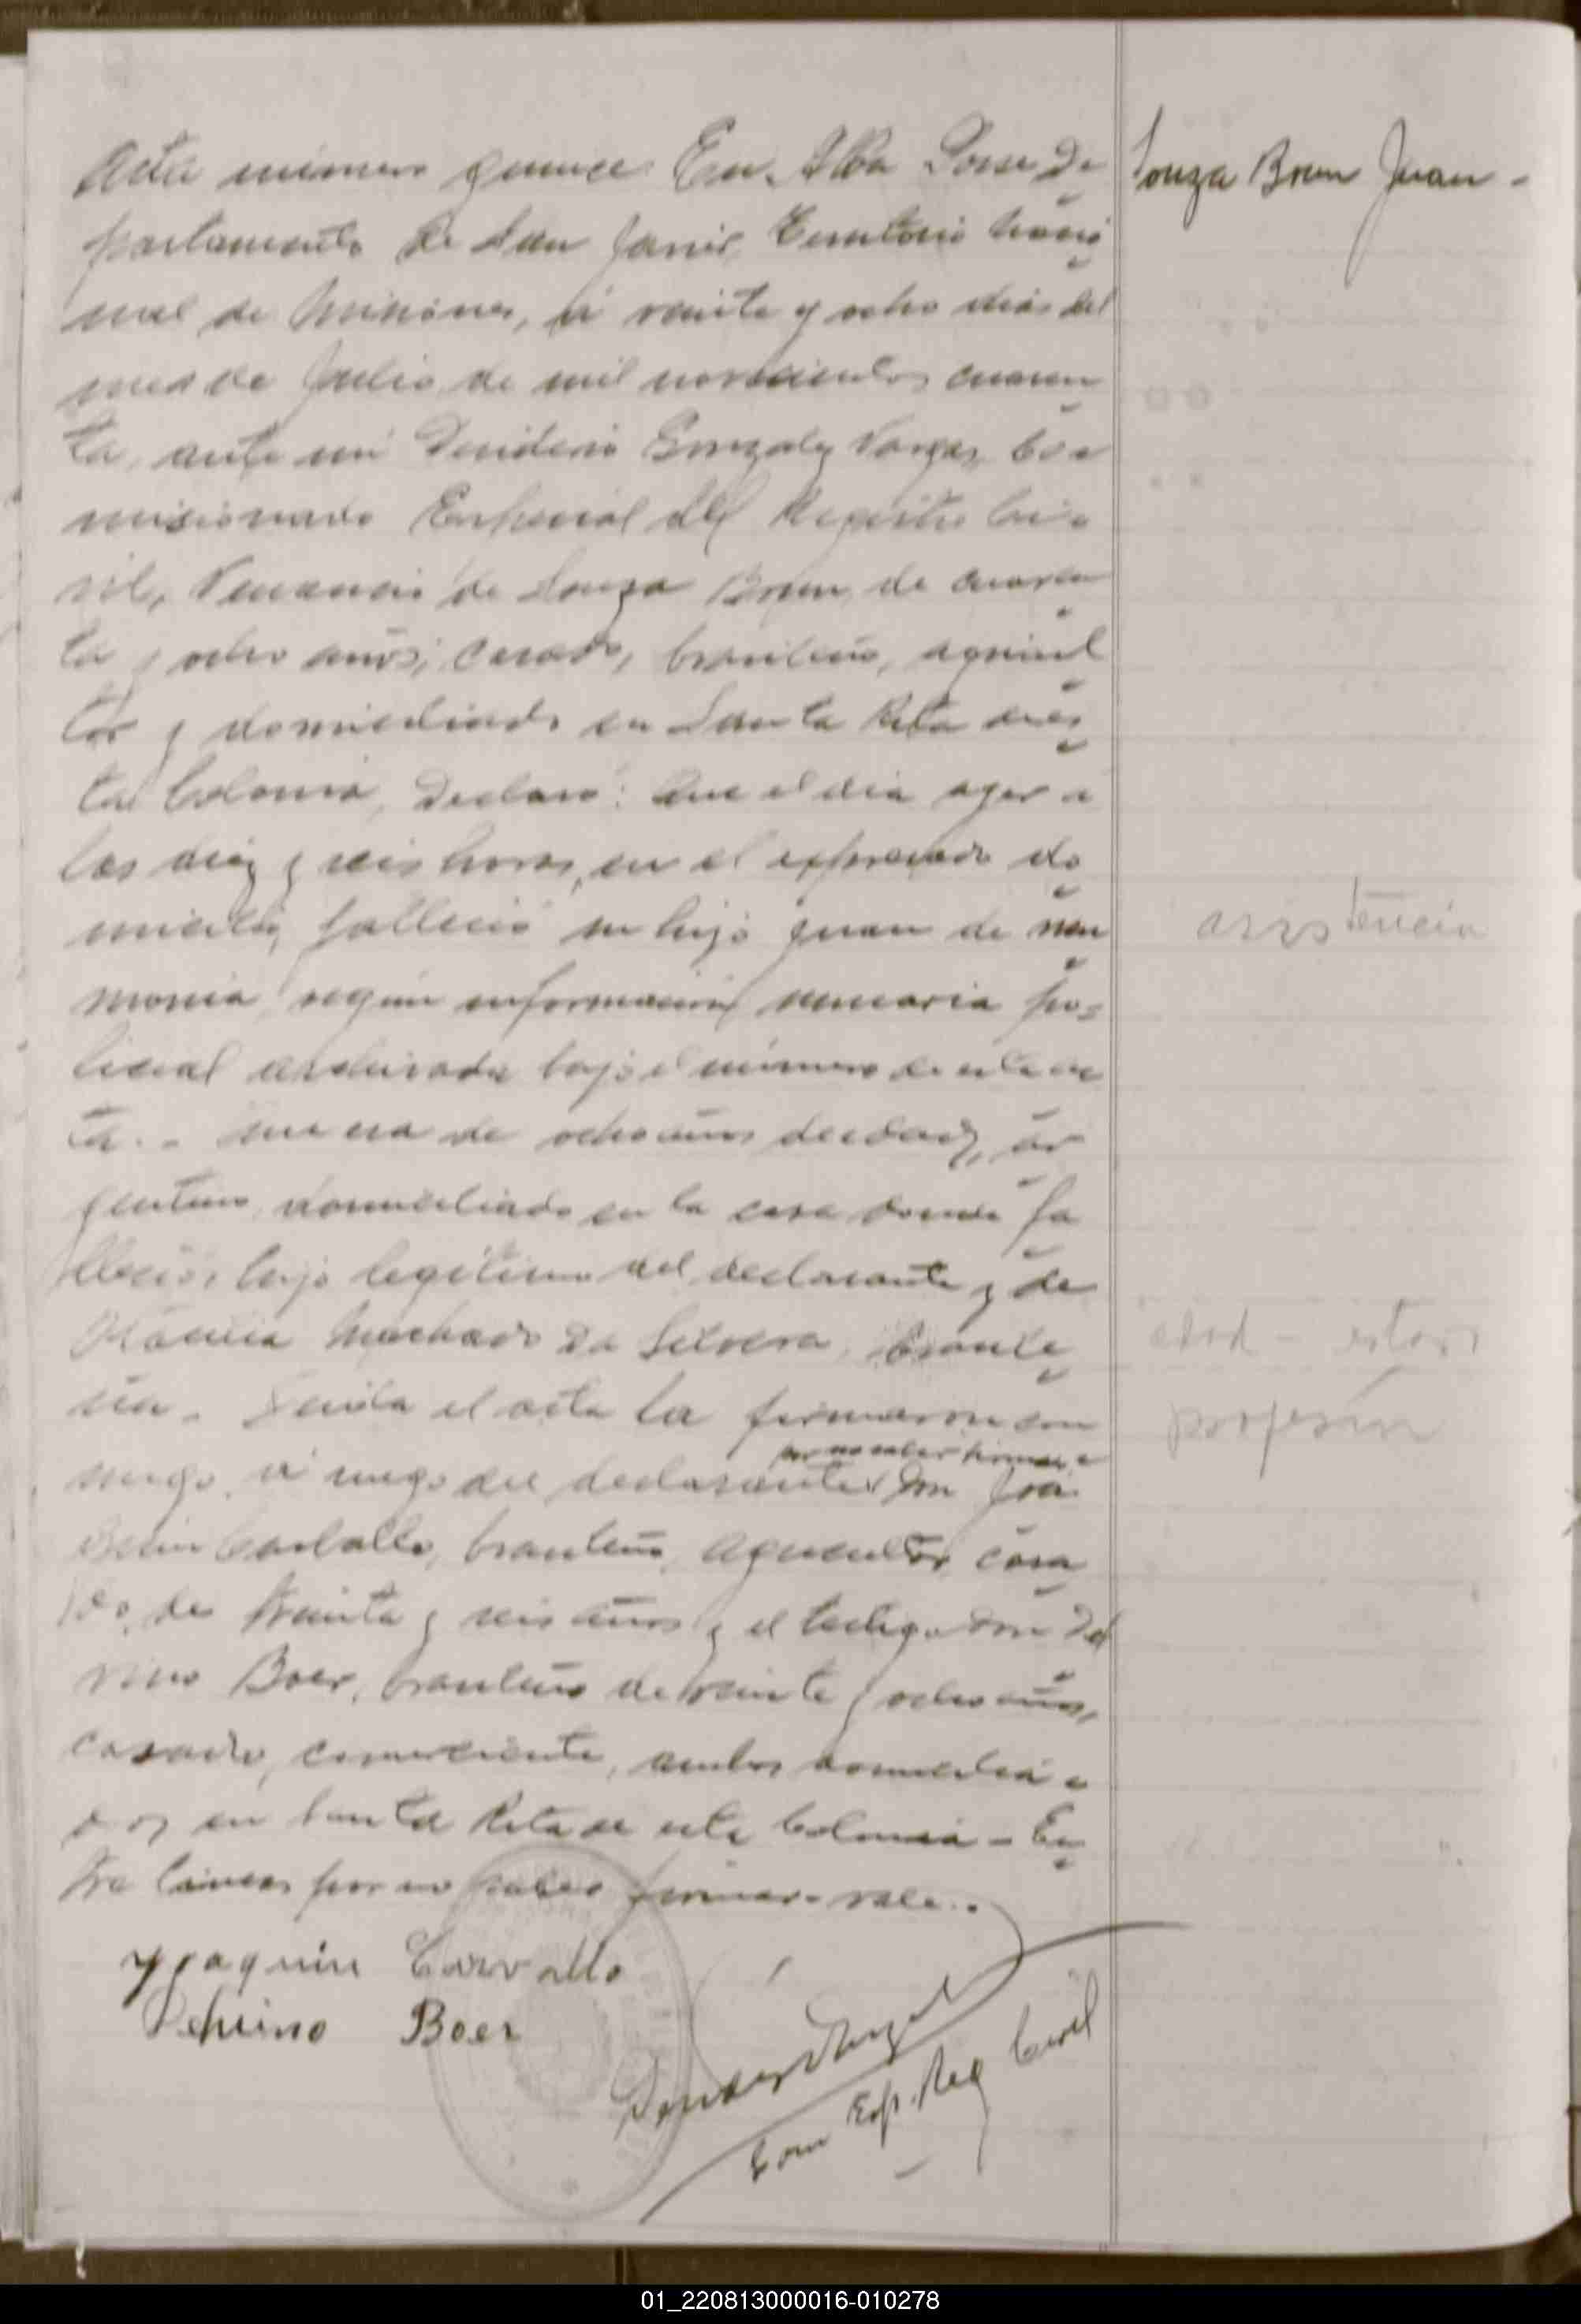 Acta número quince En Alba Posse De
partamento de San Javier, Territorio Nacio
nal de Misiones, á veinte y ocho dias del
mes de Julio de mil novecientos cuaren
ta, ante mi Desiderio Gonzalez Vargas, Co=
misionado Especial del Registro Ci=
vil, Venancio de Souza Brum, de cuaren
ta y ocho años, casado, brasileño, agricul
tor y domiciliado en Santa Rita de es
ta Colonia, Declaró: Que el dia ayer a
las diez y seis horas, en el expresado do
micilio, falleció su hijo Juan de neu
monia según información sumaria po=
licial archivada bajo el número de esta ac
ta.- Que era de ocho años de edad, ar
gentino, domiciliado en la casa donde fa
lleció, hijo legitimo del declarante y de
Machado Da Silveira, brasile
ña. Leida el acta la firmaron con
por no saber firmar
migo, á ruego del declarante Don Joa
quin Carballo, brasileño, agricultor, casa
do, de treinta y seis años y el testigo Don Del
vino Boer, brasileño de veinte y ocho años,
casado, comerciante, ambos domicilia=
dos en Santa Rita de esta Colonia - En
tre lineas por no saber firmar - vale..
Joaquin Carvallo
Delvino Boer
Com Esp. Reg Civil
Souza Brum Juan -
asistencia
edad - estado
profesión
01_220813000016-010278